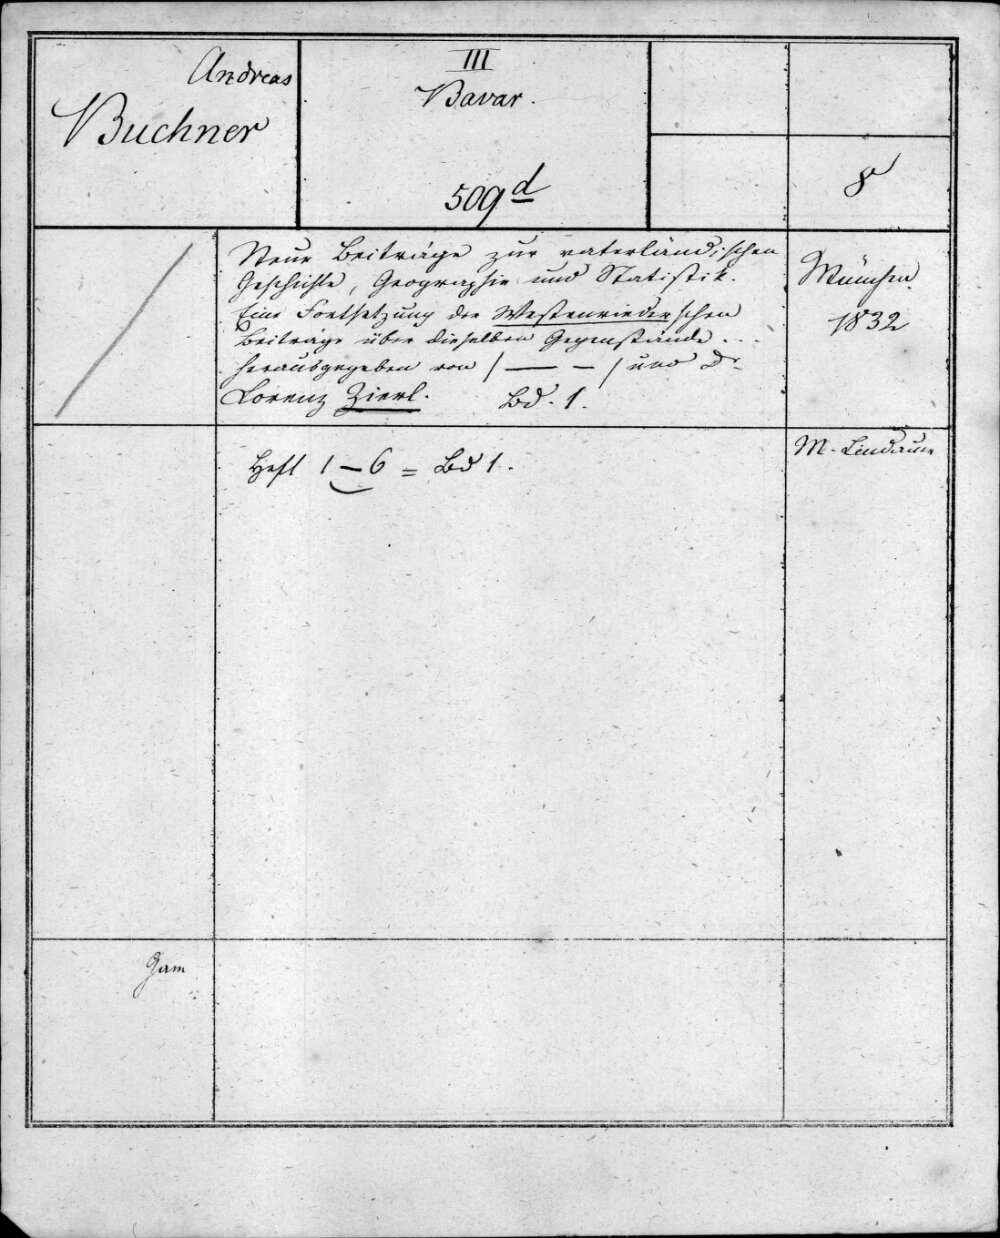 Andreas
Buchner
III
Bavar.
509 d
8
Neue Beiträge zur vaterländischen
Geschichte, Geographie und Statistik.
Eine Fortsetzung der Westenriederschen
Beiträge über dieselben Gegenstände...
herausgegeben von /— –/ und Dr
Lorenz Zierl. Bd. 1.
München
1832
Heft 1–6 = Bd 1.
M. Lindauer